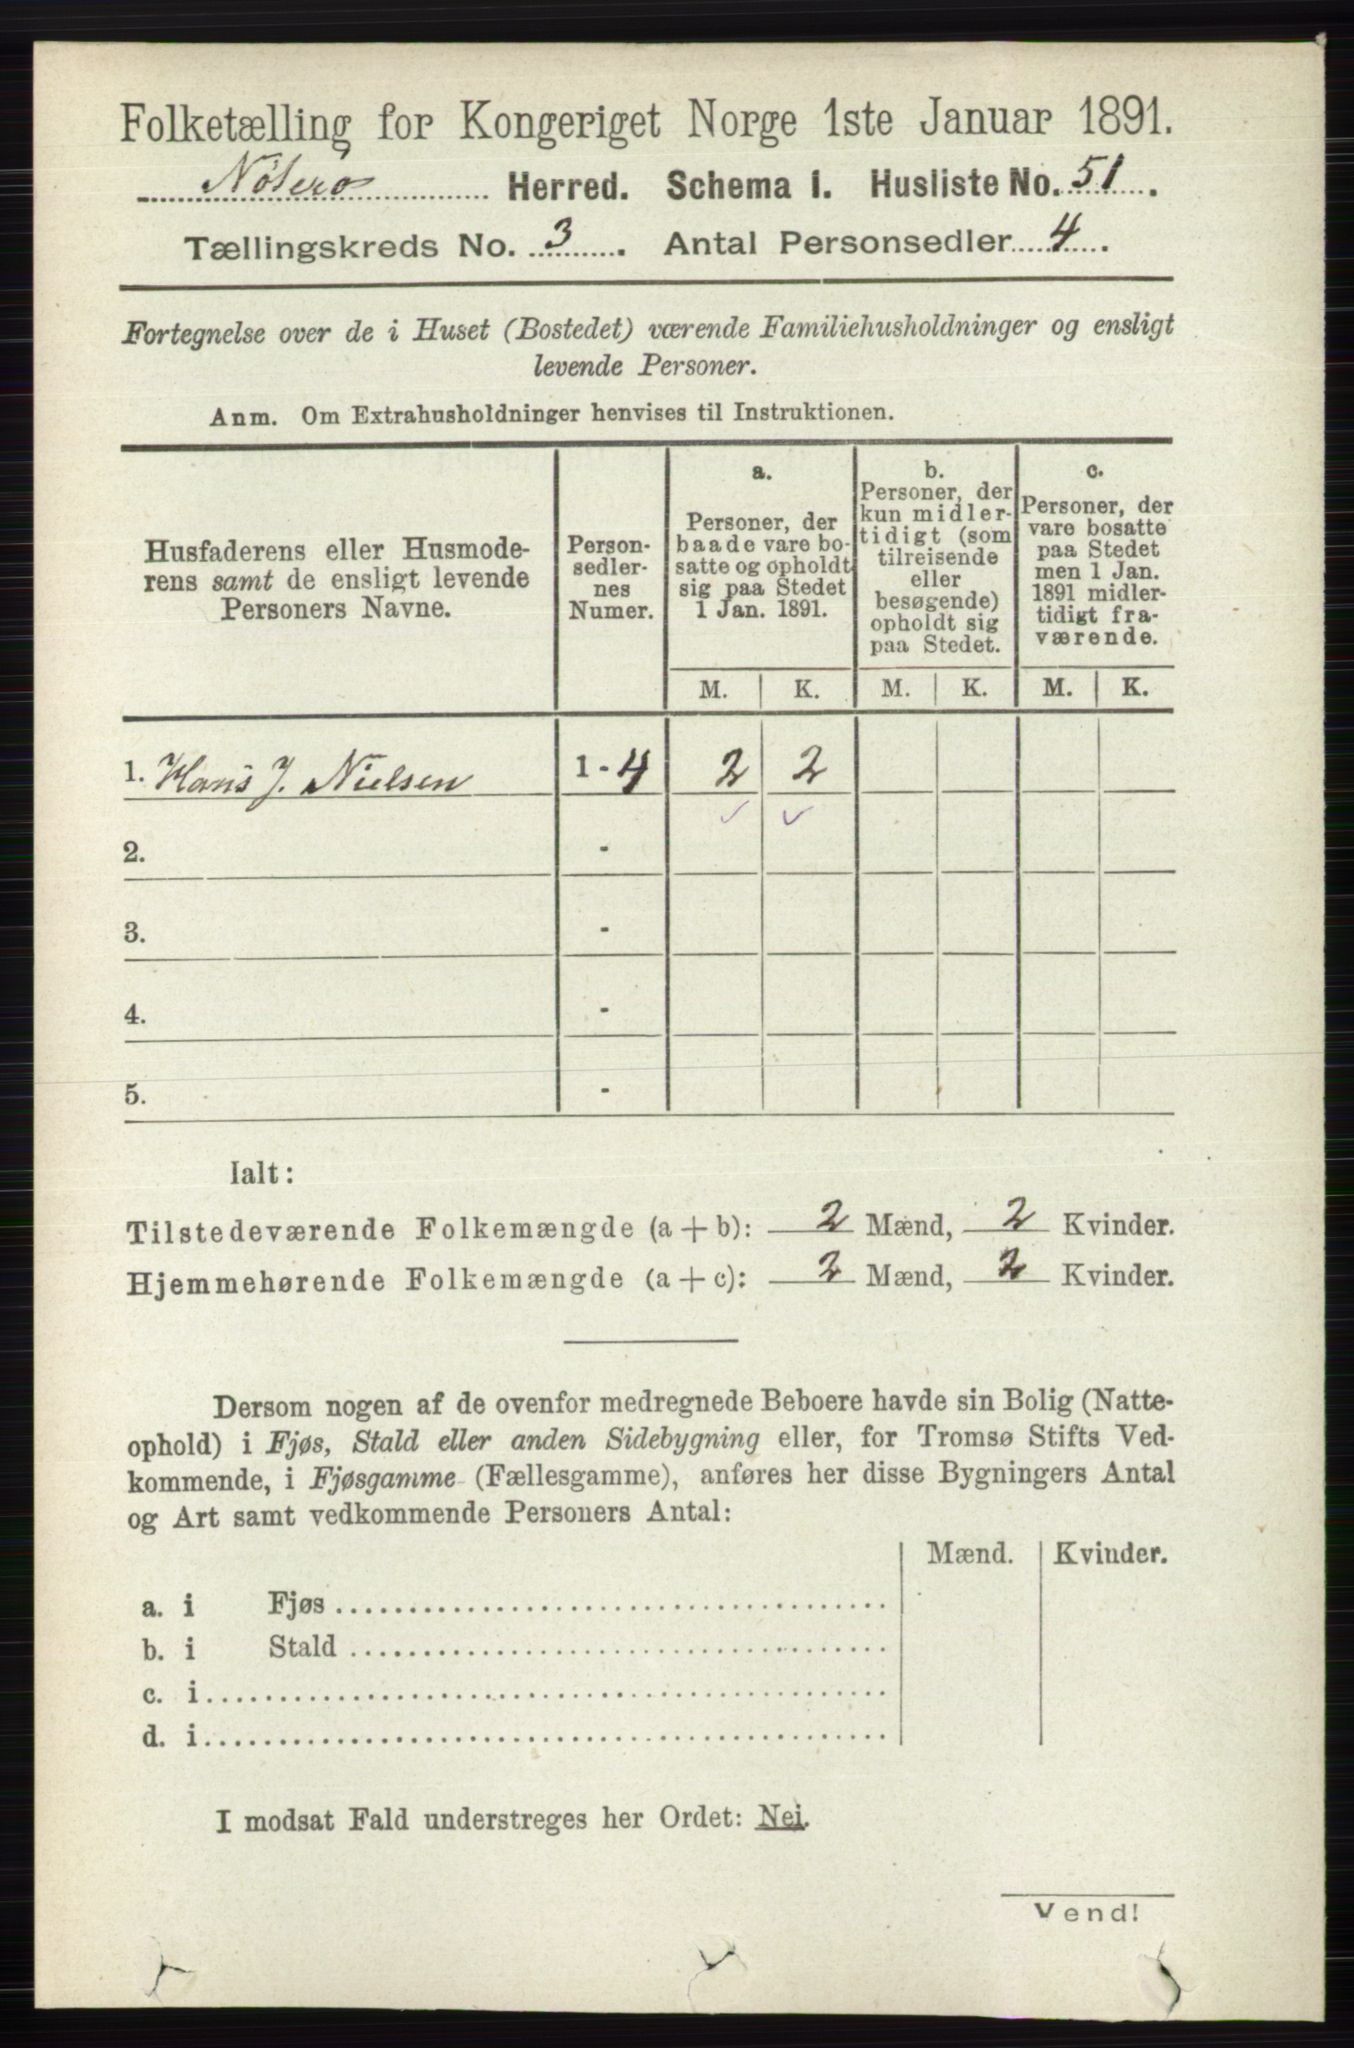 Folketælling for Kongeriget Norge 1ste Januar 1891.
Nøterø Herred. Schema I. Husliste No. 51.
Tællingskreds No. 3. Antal Personsedler 4.
Fortegnelse over de i Huset (Bostedet) værende Familiehusholdninger og ensligt
levende Personer.
Anm. Om Extrahusholdninger henvises til Instruktionen.
Husfaderens eller Husmode-
rens samt de ensligt levende
Personers Navne.
Person-
sedler-
nes
Numer.
a.
Personer, der
baade vare bo-
satte og opholdt
sig paa Stedet
1 Jan. 1891.
b.
Personer, der
kun midler-
tidigt (som
tilreisende
eller
besøgende)
opholdt sig
paa Stedet.
c.
Personer, der
vare bosatte
paa Stedet
men 1 Jan.
1891 midler-
tidigt fra-
værende.
M. K. M. K. M. K.
1. Hans J. Nielsen 1 - 4 2 2
2. -
3. -
4. -
5. -
Ialt:
Tilstedeværende Folkemængde (a + b): 2 Mænd, 2 Kvinder.
Hjemmehørende Folkemængde (a + c): 2 Mænd, 2 Kvinder.
Dersom nogen af de ovenfor medregnede Beboere havde sin Bolig (Natte-
ophold) i Fjøs, Stald eller anden Sidebygning eller, for Tromsø Stifts Ved-
kommende, i Fjøsgamme (Fællesgamme), anføres her disse Bygningers Antal
og Art samt vedkommende Personers Antal:
Mænd. Kvinder.
a. i Fjøs
b. i Stald
c. i
d. i
I modsat Fald understreges her Ordet: Nei.
Vend!